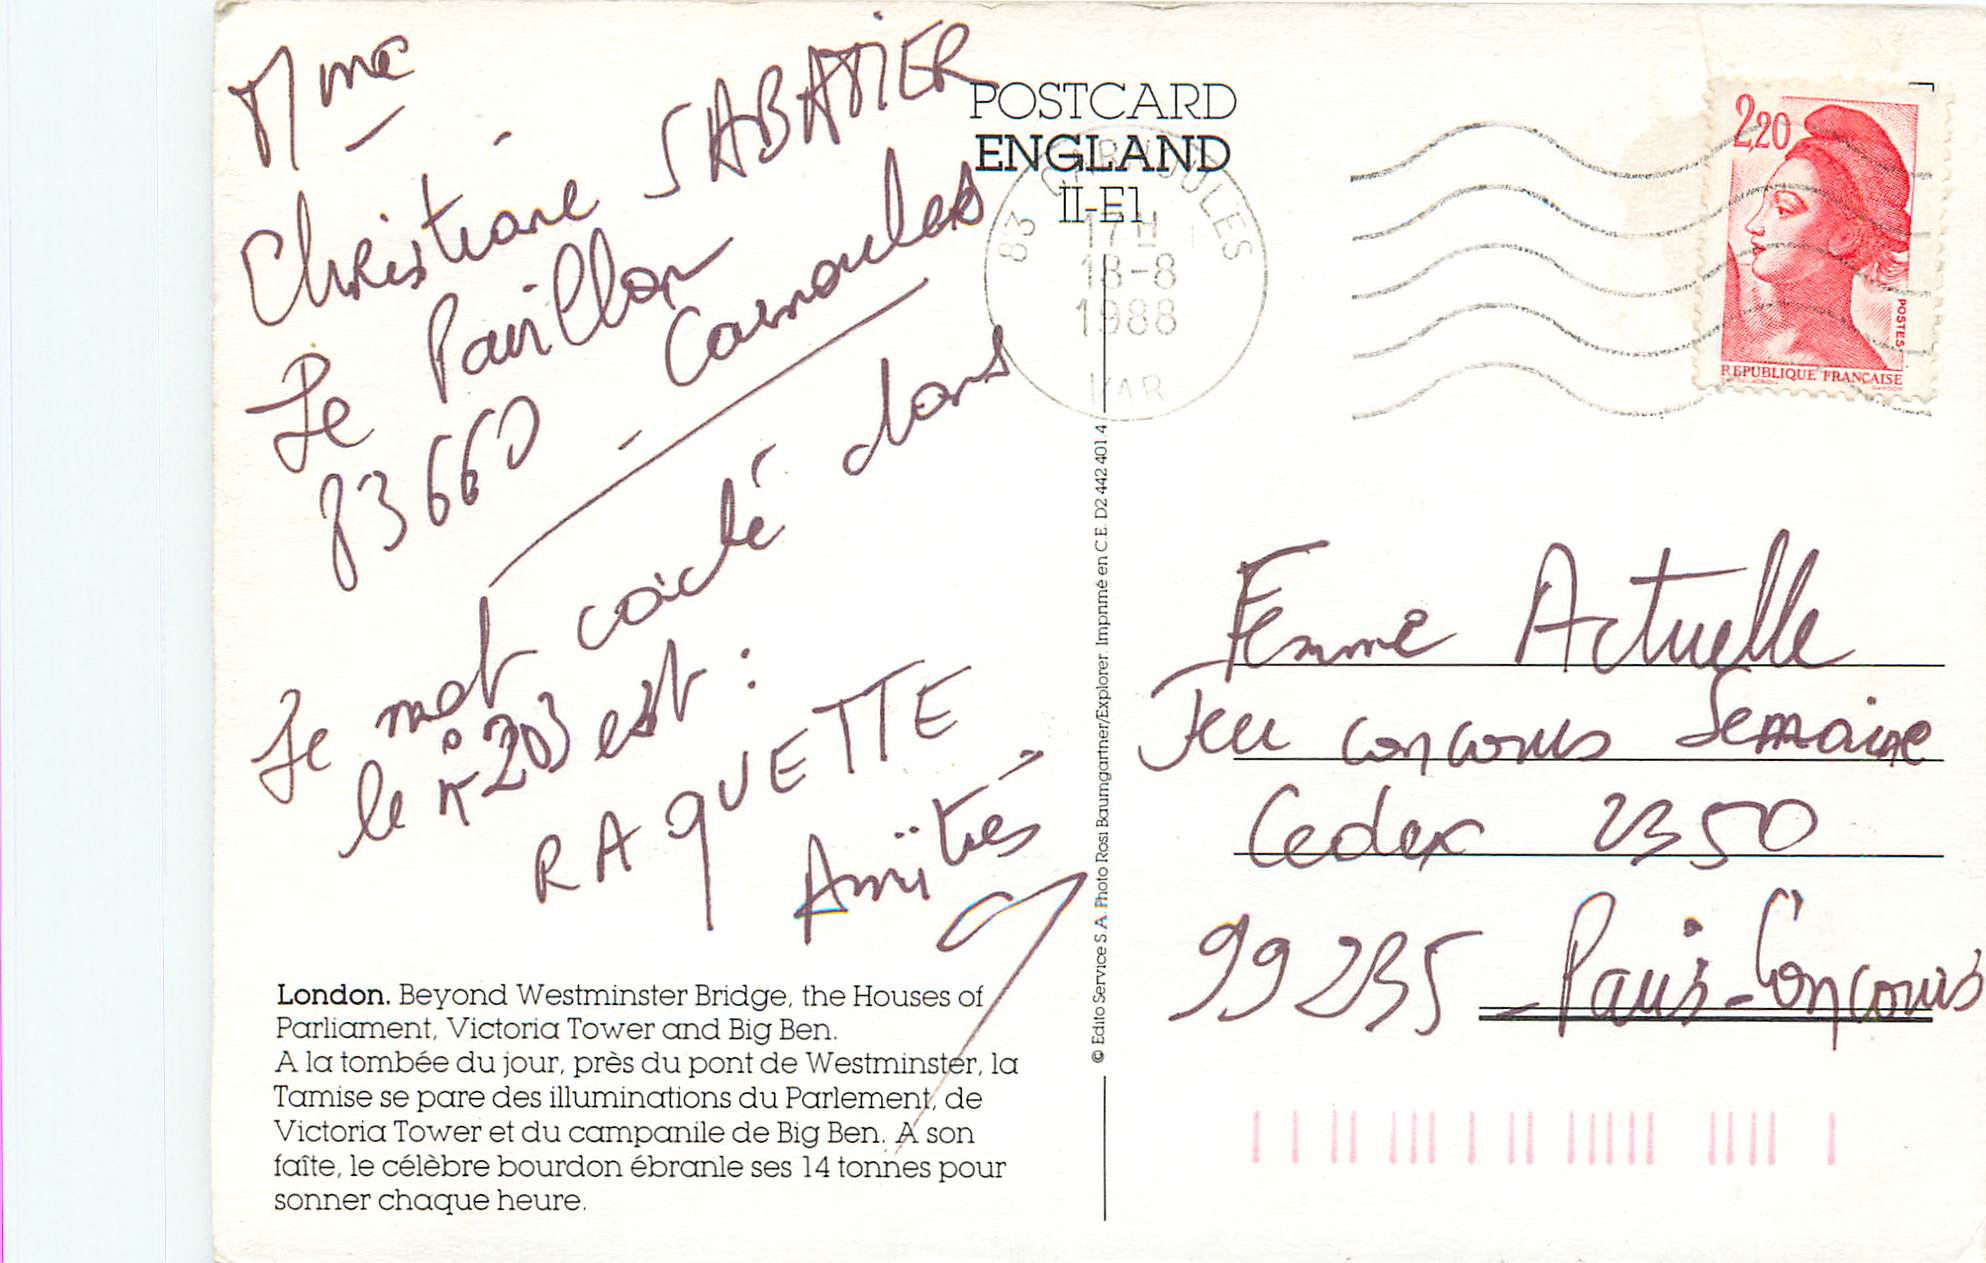 Mme
Christiane SABATIER
Le Pavillon
83660 Carnoules
Le mot caché dans
le n° 203 est :
RAQUETTE
Amitiés
London. Beyond Westminster Bridge, the Houses of
Parliament, Victoria Tower and Big Ben.
A la tombée du jour, près du pont de Westminster, la
Tamise se pare des illuminations du Parlement, de
Victoria Tower et du campanile de Big Ben. A son
faîte, le célèbre bourdon ébranle ses 14 tonnes pour
sonner chaque heure.
POSTCARD
ENGLAND
II-E1
83 CARNOULES
17H
18-8
1988
VAR
© Edito Service S.A. Photo Rosi Baumgartner/Explorer. Imprimé en C.E. D2 442 401 4
2,20
POSTES
REPUBLIQUE FRANÇAISE
Femme Actuelle
Jeu concours Semaine
Cedex 2350
99235 - Paris-Concours